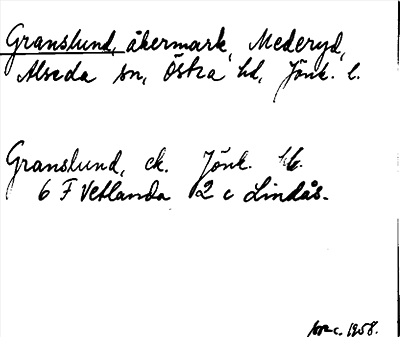 Granslund, åkermark, Mederyd,
Alseda sn, Östra hd, Jönk. l.
Granslund, ek. Jönk.
6 F Vetlanda 2 c Lindås.
1958.